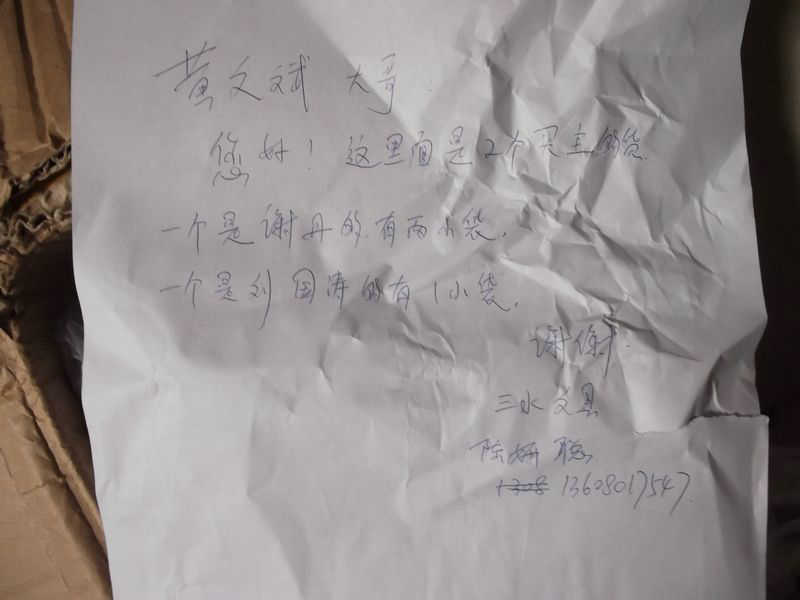 黄文斌 大哥
您好！这里面是2个买主的货
一个是谢丹的.有两小袋.
一个是刘国涛的有1小袋.
谢谢.
三水文具
陈妍聪
1308 13608017547